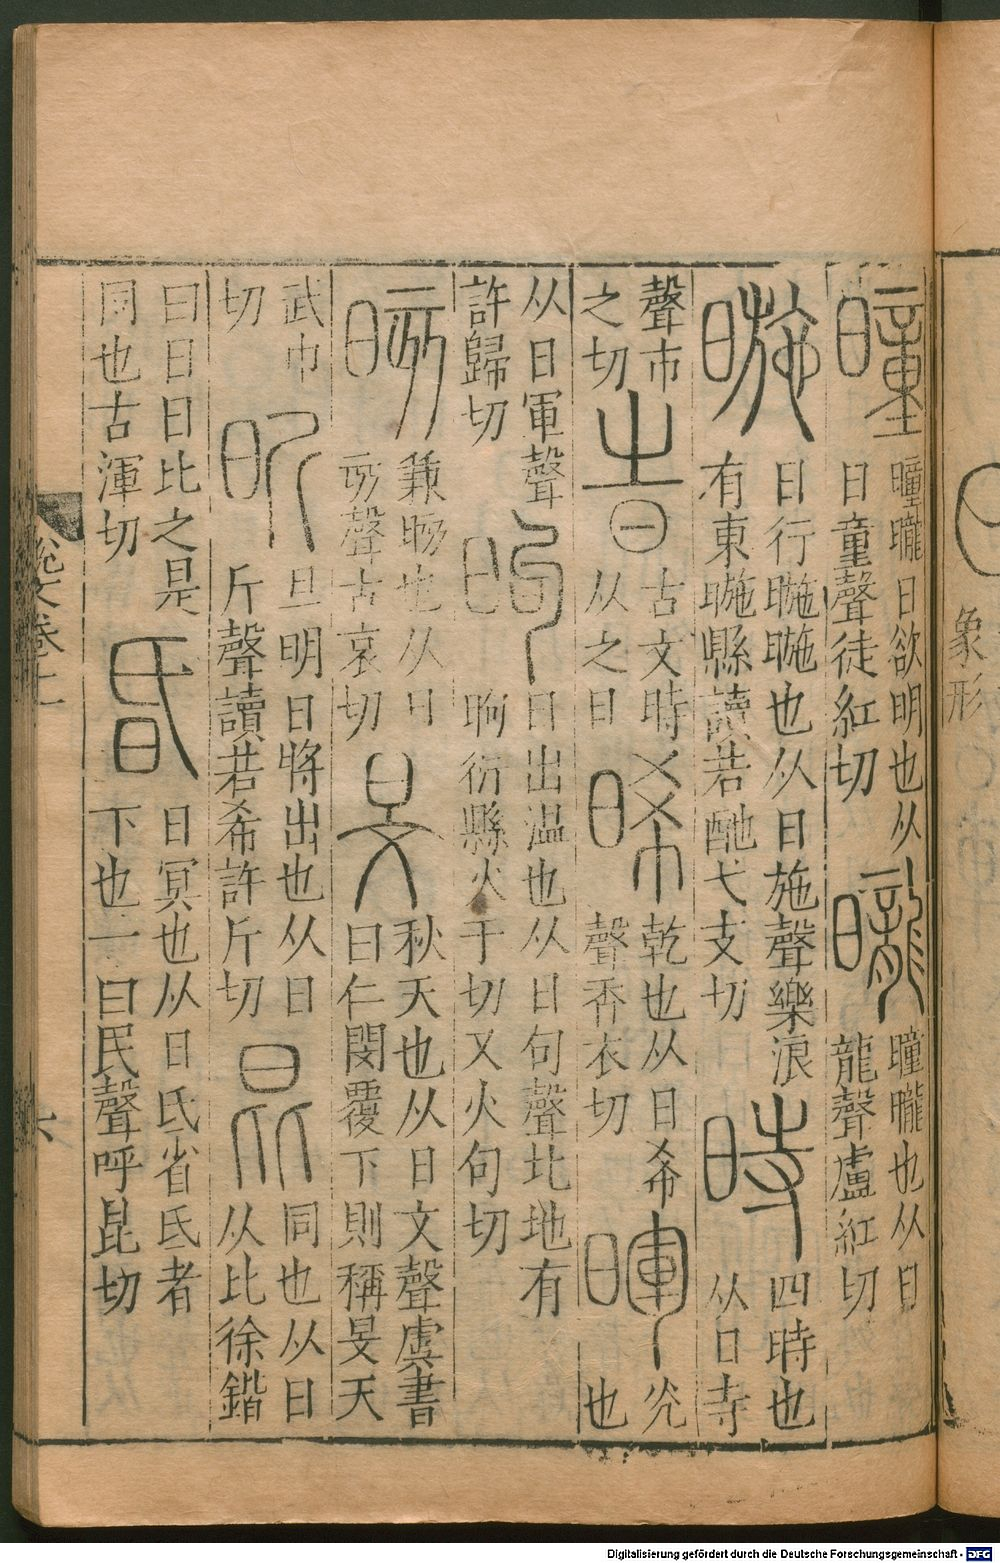 象形
曈
曈曨日欲明也从
日童聲徒紅切
曨
曈曨也从日
龍聲盧紅切
暆
日行暆暆也从日施聲樂浪
有東暆縣讀若酏弋支切
時
四時也
从日寺
聲市
之切
旹
古文時
从之日
晞
乾也从日希
聲香衣切
暉
光
也
从日軍聲
許歸切
昫
日出温也从日句聲北地有
昫衍縣火于切又火句切
晐
兼晐也从日
亥聲古哀切
旻
秋天也从日文聲虞書
曰仁閔覆下則稱旻天
武巾
切
昕
旦明日將出也从日
斤聲讀若希許斤切
昆
同也从日
从比徐鍇
曰日日比之是
同也古渾切
昏
日冥也从日氐省氐者
下也一曰民聲呼昆切
說文卷
六
Digitalisierung gefördert durch die Deutsche Forschungsgemeinschaft - DFG